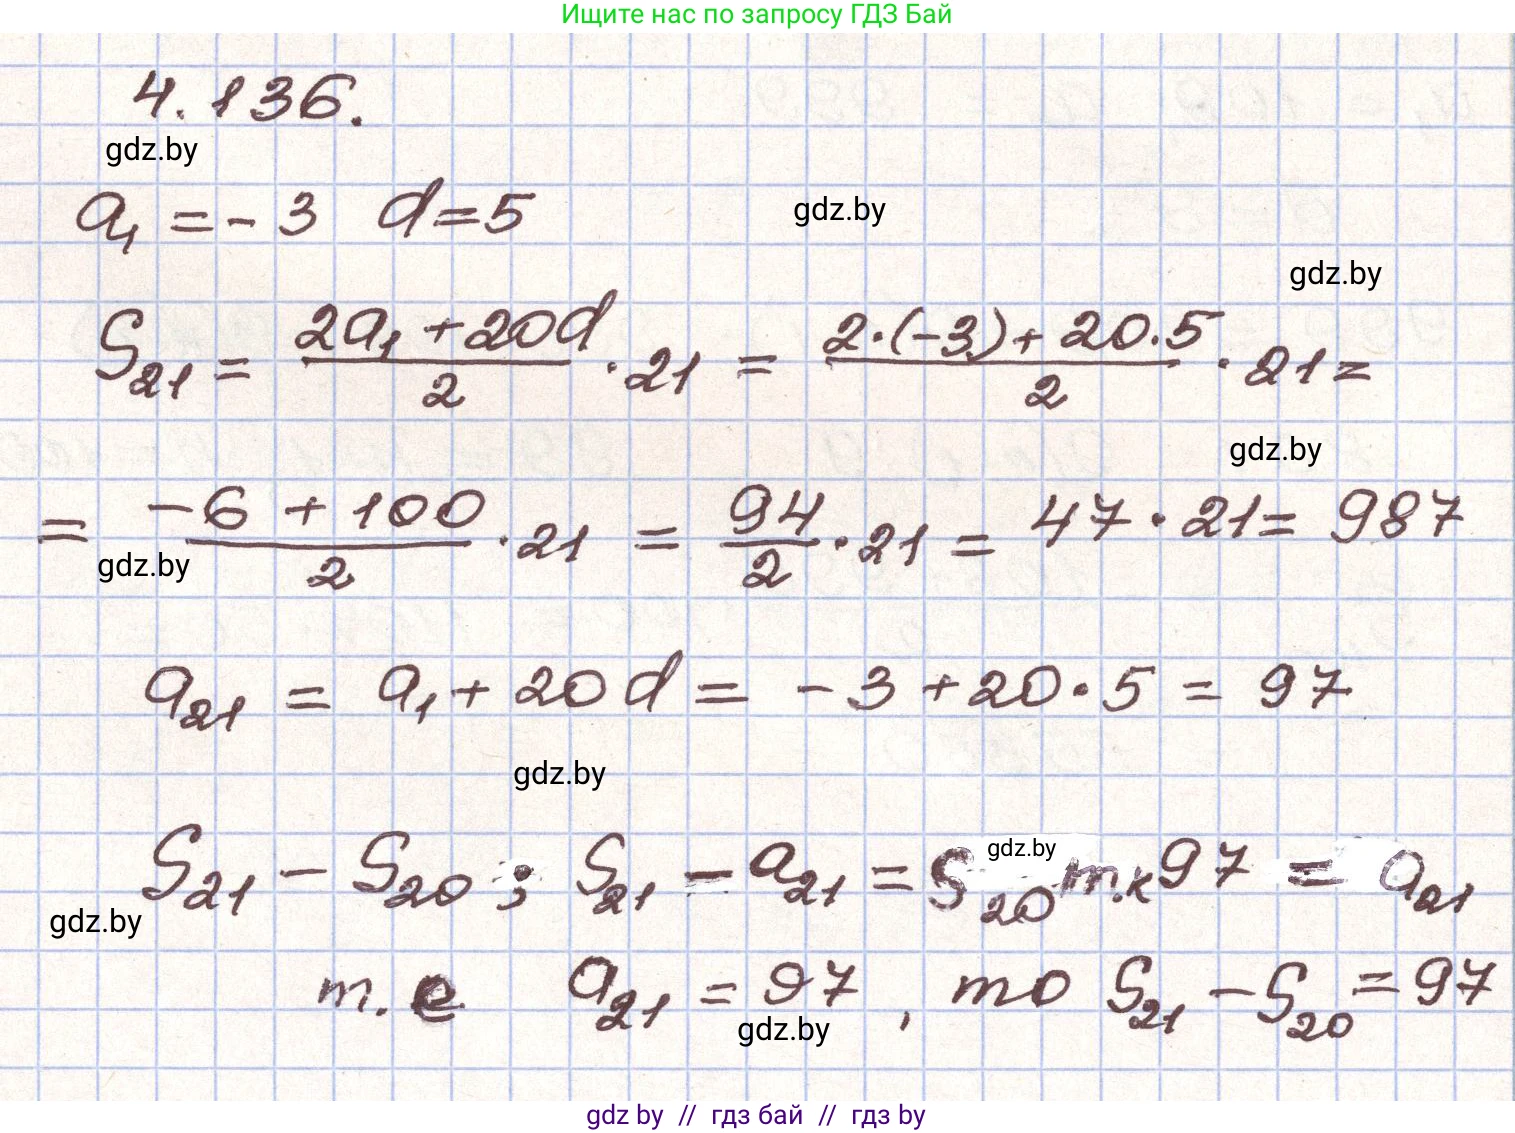 Ищите нас по запросу ГДЗ Бай
4.136.
gdz.by
a₁ = -3 d = 5
gdz.by
gdz.by
S₂₁ = (2a₁ + 20d)/2 · 21 = (2·(-3) + 20·5)/2 · 21 =
gdz.by
= (-6 + 100)/2 · 21 = 94/2 · 21 = 47 · 21 = 987
gdz.by
a₂₁ = a₁ + 20d = -3 + 20·5 = 97
gdz.by
S₂₁ - S₂₀ ; S₂₁ - a₂₁ = S₂₀ т.к 97 = a₂₁
gdz.by
gdz.by
т.е a₂₁ = 97, то S₂₁ - S₂₀ = 97
gdz.by
gdz by // гдз бай // гдз by